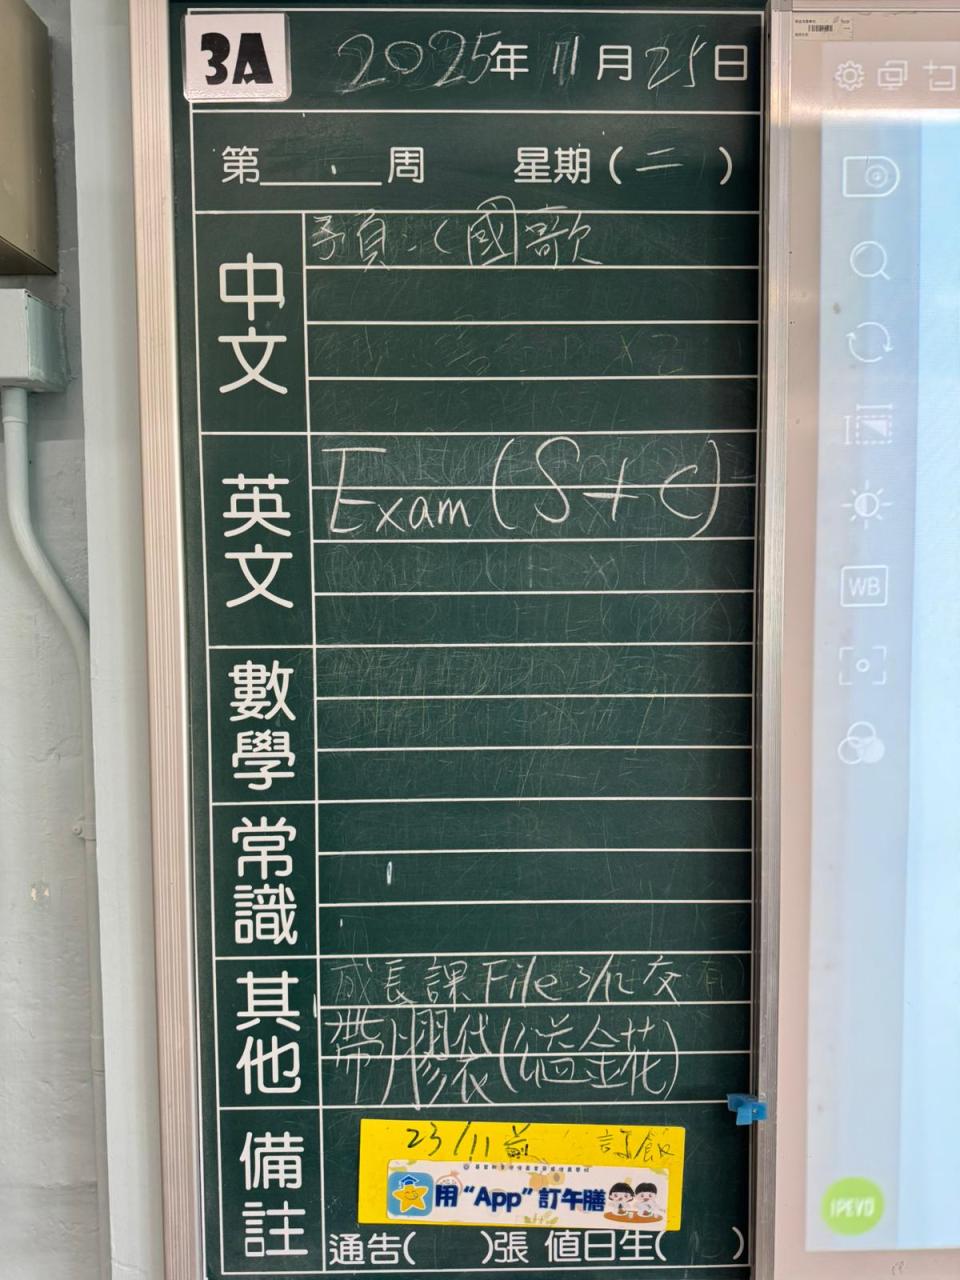 3A
2025年 11月25日
第____周 星期(二)
中文
予頁:(國歌
英文
Exam (S+C)
數學
常識
其他
成長課 File 3/12交
帶膠袋(縊金花)
備註
23/11前 訂飯
用“App”訂午膳
通告( )張 值日生( )
WB
IPEVO